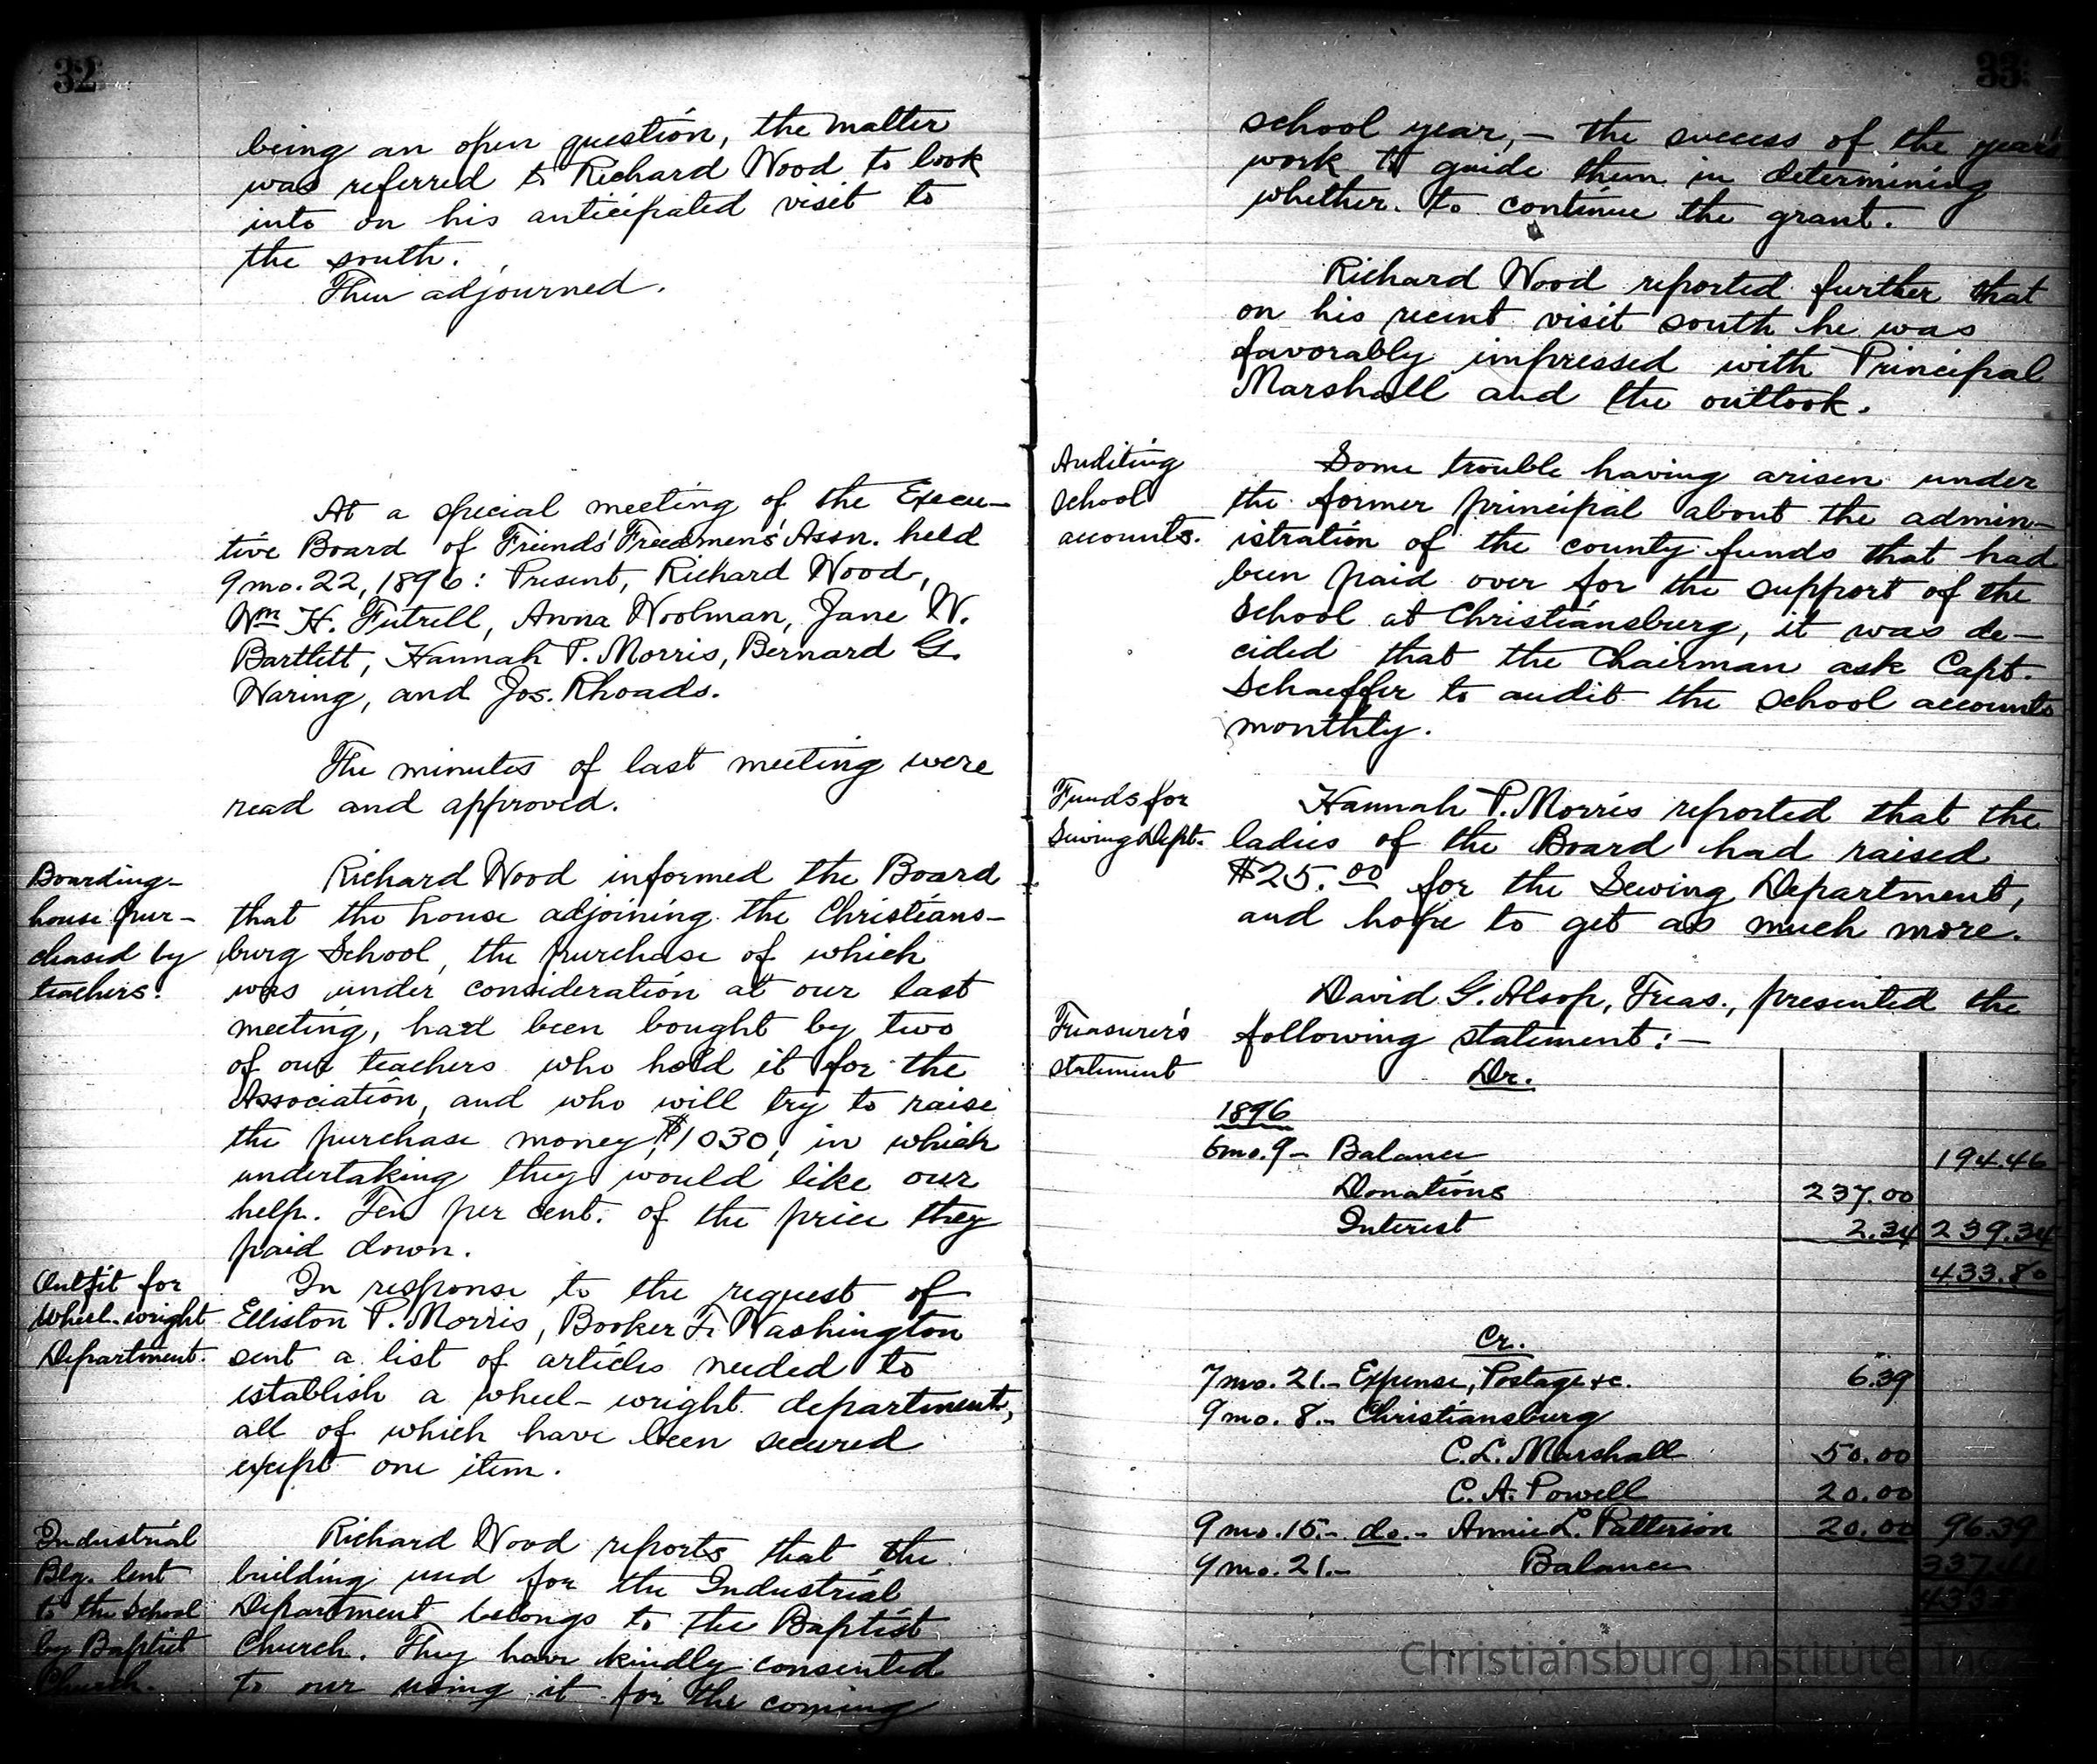 32
being an open question, the matter
was referred to Richard Wood to look
into on his anticipated visit to
the south.
Then adjourned.
At a special meeting of the Execu-
tive Board of Friends' Freedmen's Assn. held
9 mo. 22, 1896: Present, Richard Wood,
Wm H. Futrell, Anna Woolman, Jane W.
Bartlett, Hannah P. Morris, Bernard G.
Waring, and Jos. Rhoads.
The minutes of last meeting were
read and approved.
Boarding-
house pur-
chased by
teachers.
Richard Wood informed the Board
that the house adjoining the Christians-
burg School, the purchase of which
was under consideration at our last
meeting, had been bought by two
of our teachers who hold it for the
Association, and who will try to raise
the purchase money, $1030, in which
undertaking they would like our
help. Ten per cent. of the price they
paid down.
Outfit for
Wheel-wright
Department.
In response to the request of
Elliston P. Morris, Booker T. Washington
sent a list of articles needed to
establish a wheel-wright department,
all of which have been secured
except one item.
Industrial
Blg. lent
to the School
by Baptist
Church.
Richard Wood reports that the
building used for the Industrial
Department belongs to the Baptist
Church. They have kindly consented
to our using it for the coming
33
school year, - the success of the year's
work to guide them in determining
whether to continue the grant.
Richard Wood reported further that
on his recent visit south he was
favorably impressed with Principal
Marshall and the outlook.
Auditing
School
accounts.
Some trouble having arisen under
the former principal about the admin-
istration of the county funds that had
been paid over for the support of the
School at Christiansburg, it was de-
cided that the Chairman ask Capt.
Schaeffer to audit the school accounts
monthly.
Funds for
Sewing Dept.
Hannah P. Morris reported that the
ladies of the Board had raised
$25.00 for the Sewing Department,
and hope to get as much more.
Treasurer's
statement
David G. Alsop, Treas., presented the
following statement:-
Dr.
1896
6 mo. 9 - Balance 194.46
Donations 237.00
Interest 2.34 239.34
433.80
Cr.
7 mo. 21.- Expense, Postage &c. 6.39
9 mo. 8.- Christiansburg
C. L. Marshall 50.00
C. A. Powell 20.00
9 mo. 15.- do.- Annie L. Patterson 20.00 96.39
9 mo. 21.- Balance
Christiansburg Institute, Inc.